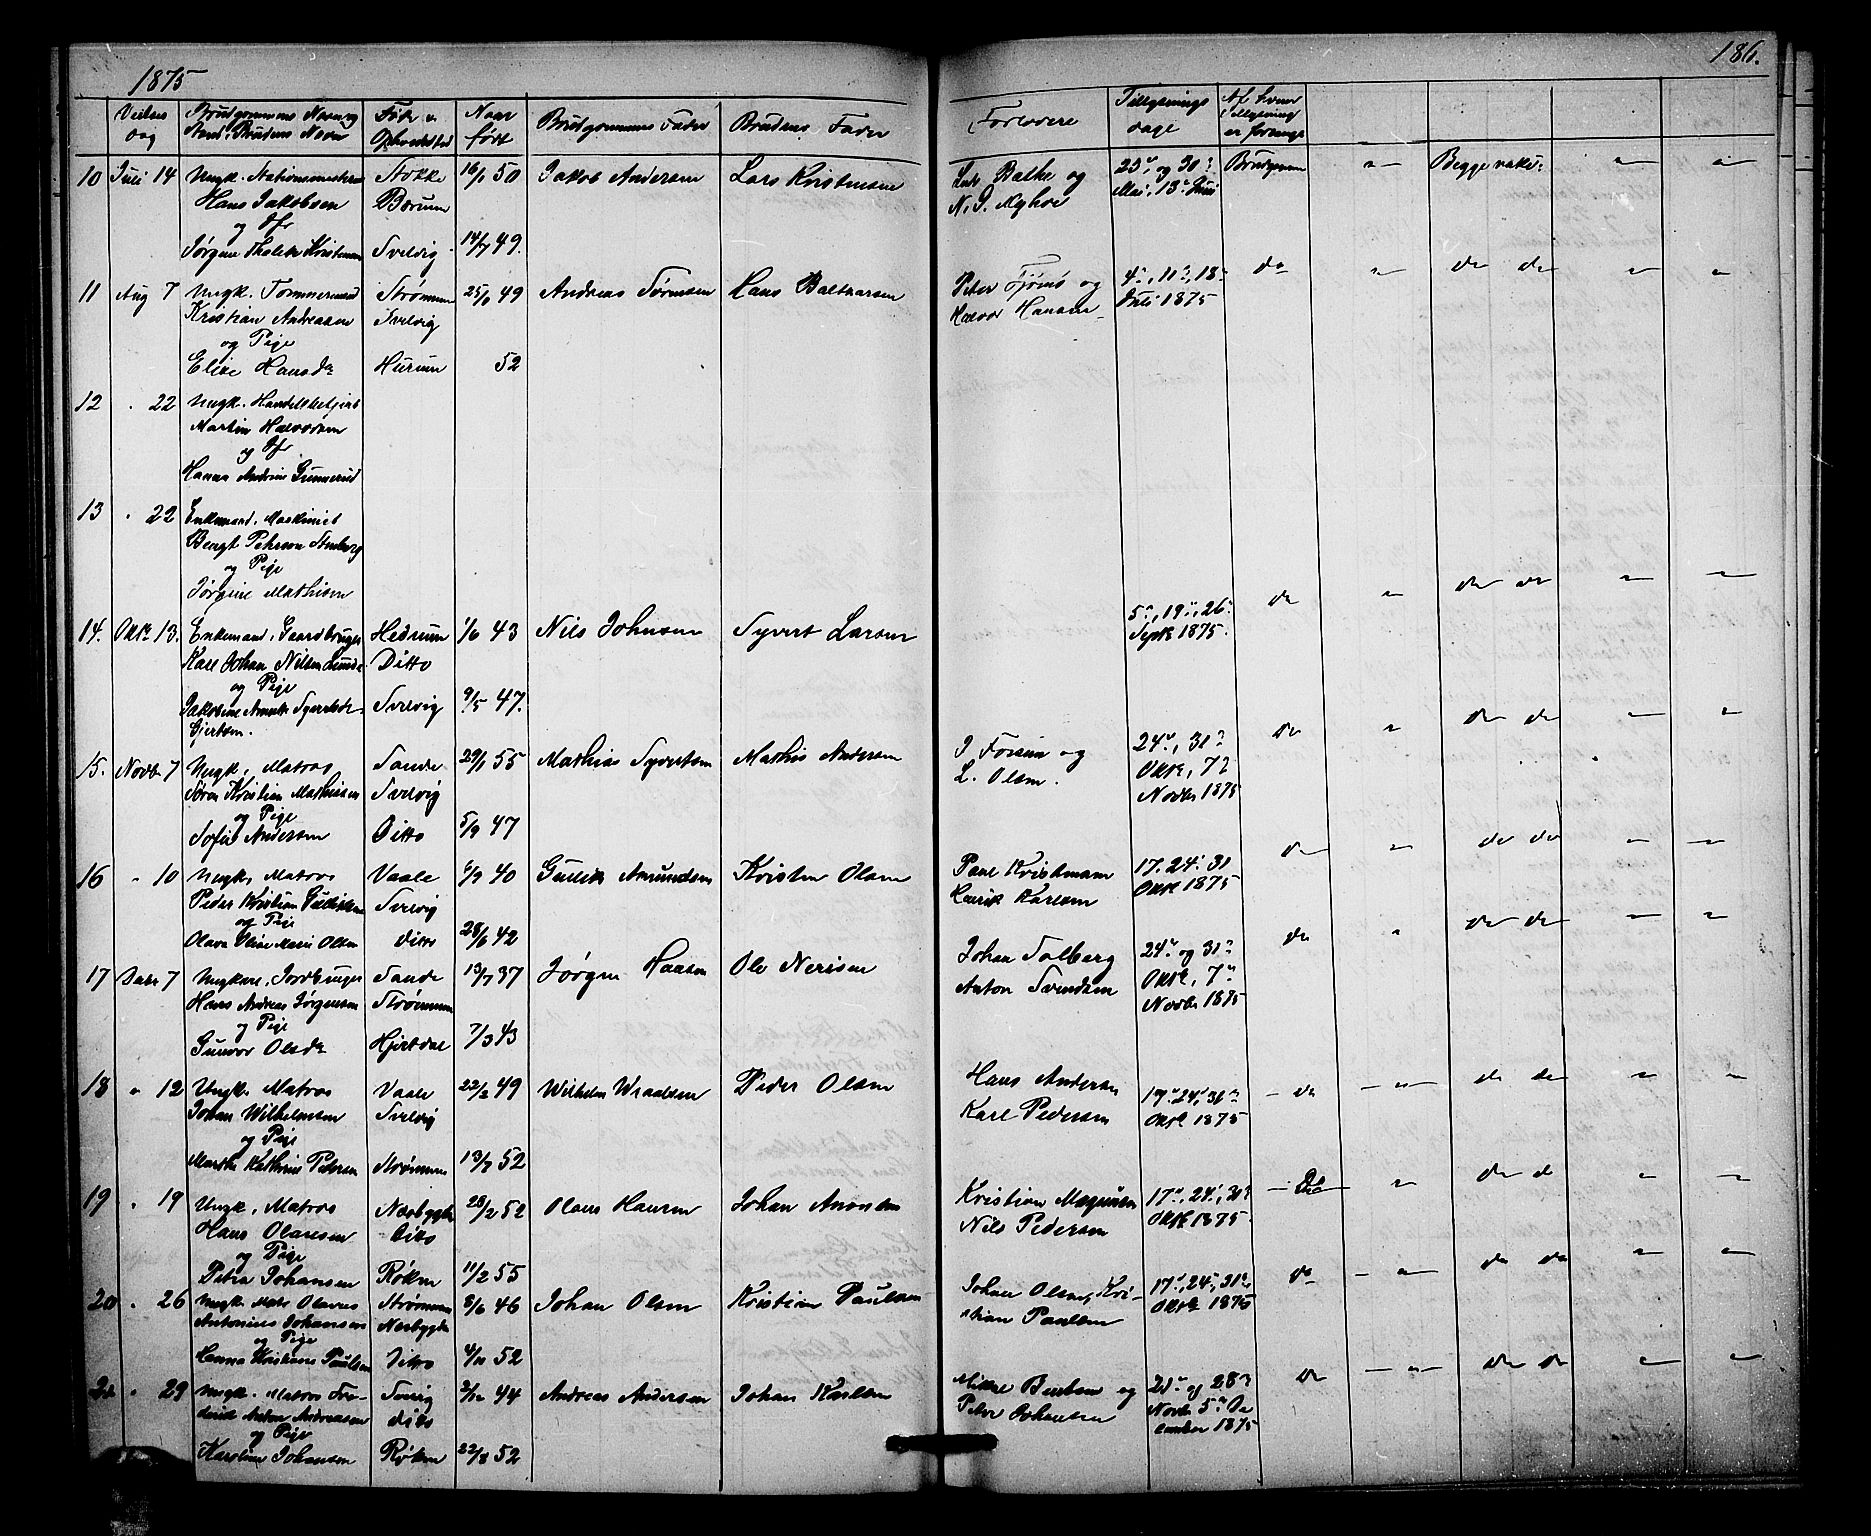 1875
186.
Vielses dag
Brudgommens Navn og Stand, Brudens Navn
Føde og Opholdssted
Naar født
Brudgommens Fader
Brudens Fader
Forlovere
Tillysnings dage
Af hvem Tillysning er forlangt
10 Juli 14 Ungk. Stokke 16/1 50 Jakob Andersen Lars Kristensen
Balke og 23de og 30te Brudgom " Begge vakc: " "
Hans Jakobsen Bærum
N. J. Myhre Mai, 13de Juni
og
Jørgine Kristensen Svelvig 14/7 49.
11 Aug 7 Ungk. Tømmermand Strømmen 25/1 49 Andreas Sørensen Hans Baltharsen
Peter Fjøms og 4de, 11te, 18de do " do do " "
Kristian Andreasen Svelvig
Halvor Hansen Juli 1875
og Pige
Elise Hansdr Hurum 52
12 " 22 Ungk. Handelsbetjent
Martin Halvorsen
og
Hanna Andrine Gunnerud
13 " 22 Enkemand, Maskinist
Bengt Pehrson
og Pige
Jørgine Mathisen
14. Oktr 13. Enkemand, Gaardbruger Hedrum 1/6 43 Nils Johnsen Syvert Larsen
5te, 19de, 26de do " do do " "
Karl Johan Nilsen Lunde Ditto
Septr 1875.
og Pige
Jakobine Svelvig 9/5 47.
Gjertsen.
15. Novbr 7 Ungk. Matros Sande 29/1 55 Mathias Syvertsen Mathis Andersen
J. Fossum og 24de, 31te do " do do " "
Søren Kristian Mathiesen Svelvig
L. Olsen. Oktr, 7de
og Pige
Novbr 1875
Sofie Andersen Ditto 5/9 47
16 " 10 Ungk. Matros Vaale 6/9 40 Gullik Amundsen Kristen Olsen
Paul Kristensen 17. 24. 31 do " do do " "
Peder Kristian Gulliksen Svelvig
Henrik Karlsen Oktr 1875
og Pige
Olava Oline Marie Olsen ditto 28/6 42
17 Decbr 7 Ungkarl, Jordbruger Sande 13/7 37 Jørgen Hansen Ole Nerisen
Johan Solberg 24de og 31te do " do do " "
Hans Andreas Jørgensen Strømmen
Anton Svendsen Oktr, 7de
og Pige
Novbr 1875
Gunvor Olsdr Hjertdal 7/3 43
18 " 12 Ungk. Matros Vaale 22/2 49 Wilhelm Wraalsen Peder Olsen
Hans Andersen 17de 24de, 31te do " do do " "
Johan Wilhelmsen Svelvig
Karl Pedersen Oktr 1875
og Pige
Marthe Kathrine Pedersen Strømmen 13/7 52
19 " 19 Ungk. Matros Nesbygda 28/2 52 Olaus Hansen Johan
Kristian Magnusen 17de, 24de, 31te do " do do " "
Hans Olausen Ditto
Nils Pedersen Oktr 1875.
og Pige
Petra Johansen Røken 11/2 55
20 " 26 Ungk. Matr Olavus Strømmen 8/6 46 Johan Olsen Kristian Paulsen
Johan Olsen, Kri- 17de, 24de, 31te do " do do " "
Antonius Johansen Nesbygda
stian Paulsen Oktr 1875
og Pige
Hanna Kristiane Paulsen Ditto 4/11 52
21 " 29 Ungk. Matros Fre- Svelvig 2/12 44 Andreas Andersen Johan Karlsen
Mikkel Bentsen og 21de og 28de do " do do " "
derik Anton Andreasen ditto
Peter Johansen Novbr 5te De
og Pige
cember 1875
Karoline Johansen Røken 22/8 52